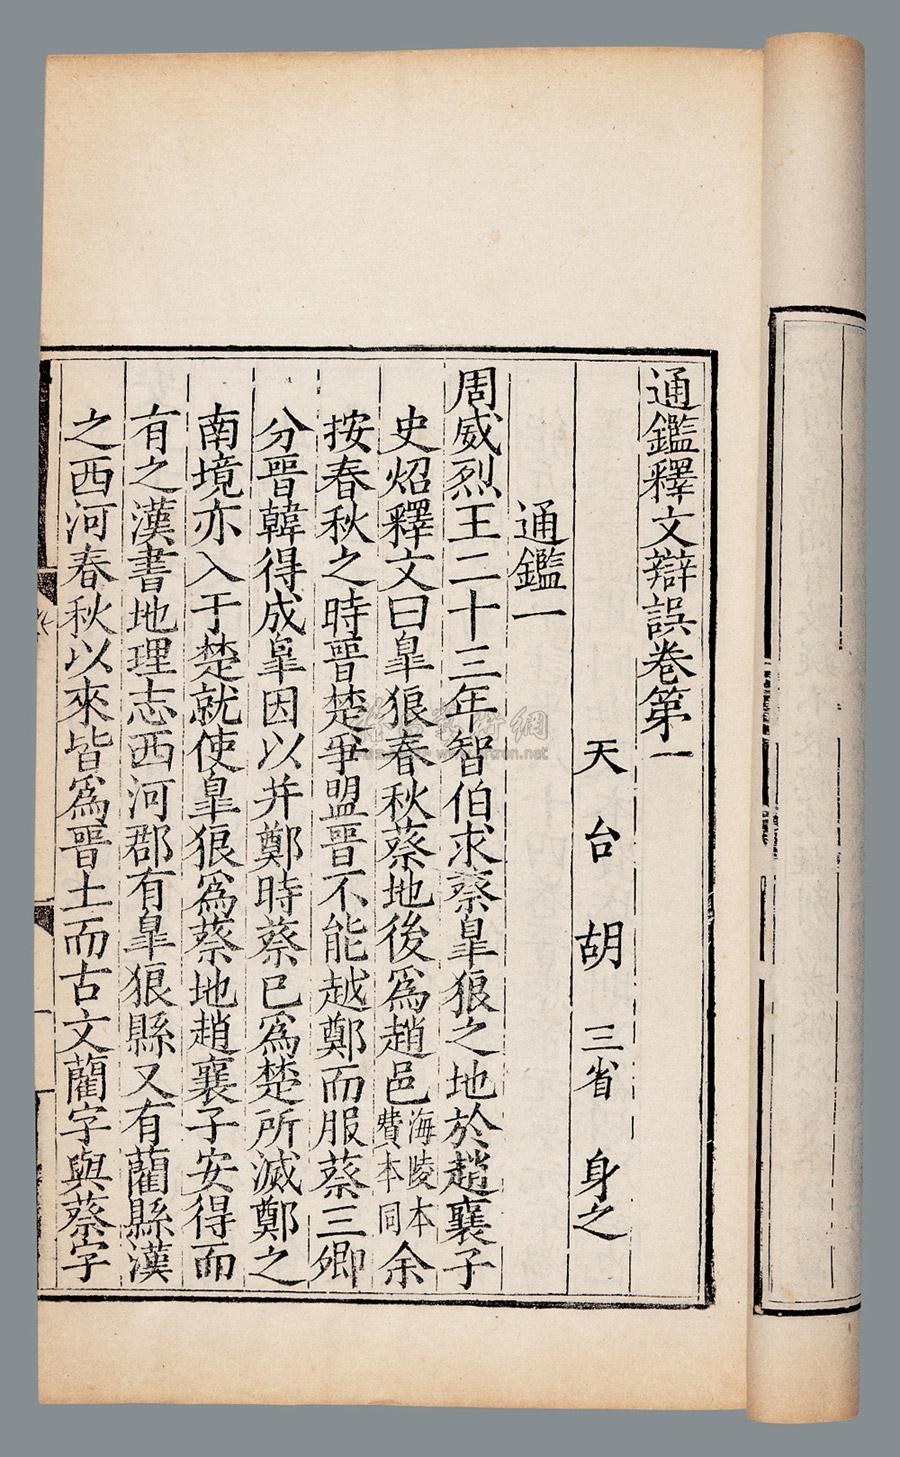 通鑑釋文辯誤卷第一
天台胡三省身之
通鑑一
周威烈王二十三年智伯求蔡皐狼之地於趙襄子
史炤釋文曰皐狼春秋蔡地後爲趙邑海陵本費本同余
按春秋之時晉楚爭盟晉不能越鄭而服蔡三卿
分晉韓得成皐因以并鄭時蔡已爲楚所滅鄭之
南境亦入于楚就使皐狼爲蔡地趙襄子安得而
有之漢書地理志西河郡有皐狼縣又有藺縣漢
之西河春秋以來皆爲晉土而古文藺字與蔡字